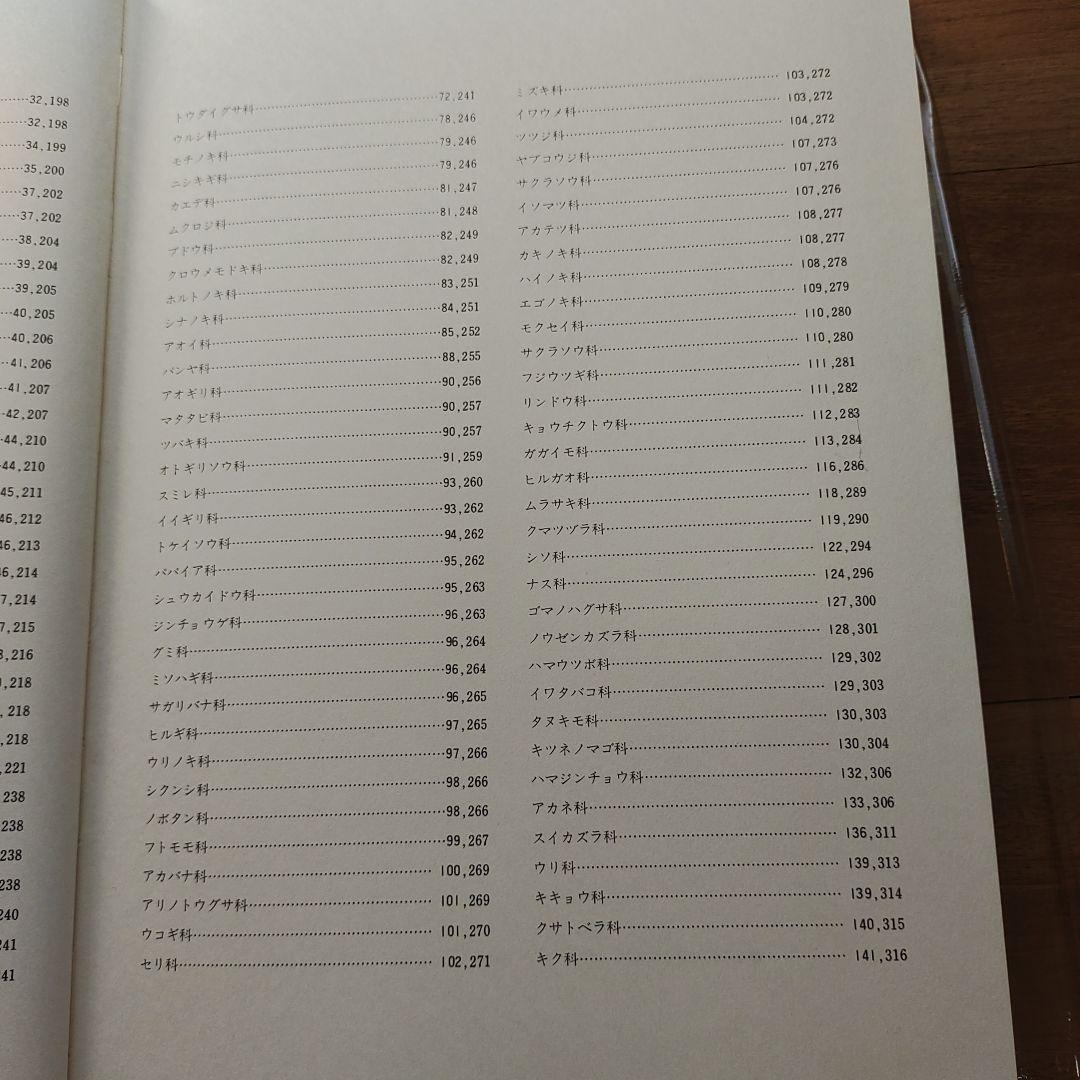 ……32,198
……32,198
……34,199
……35,200
……37,202
……37,202
……38,204
……39,204
……39,205
…40,205
…40,206
…41,206
…41,207
…42,207
…44,210
…44,210
45,211
46,212
46,213
46,214
7,214
7,215
3,216
,218
,218
,218
,221
238
238
238
238
240
241
41
トウダイグサ科……………………72,241
ウルシ科……………………78,246
モチノキ科……………………79,246
ニシキギ科……………………79,246
カエデ科……………………81,247
ムクロジ科……………………81,248
ブドウ科……………………82,249
クロウメモドキ科……………………82,249
ホルトノキ科……………………83,251
シナノキ科……………………84,251
アオイ科……………………85,252
パンヤ科……………………88,255
アオギリ科……………………90,256
マタタビ科……………………90,257
ツバキ科……………………90,257
オトギリソウ科……………………91,259
スミレ科……………………93,260
イイギリ科……………………93,262
トケイソウ科……………………94,262
パパイア科……………………95,262
シュウカイドウ科……………………95,263
ジンチョウゲ科……………………96,263
グミ科……………………96,264
ミソハギ科……………………96,264
サガリバナ科……………………96,265
ヒルギ科……………………97,265
ウリノキ科……………………97,266
シクンシ科……………………98,266
ノボタン科……………………98,266
フトモモ科……………………99,267
アカバナ科……………………100,269
アリノトウグサ科……………………101,269
ウコギ科……………………101,270
セリ科……………………102,271
ミズキ科……………………103,272
イワウメ科……………………103,272
ツツジ科……………………104,272
ヤブコウジ科……………………107,273
サクラソウ科……………………107,276
イソマツ科……………………107,276
アカテツ科……………………108,277
カキノキ科……………………108,277
ハイノキ科……………………108,278
エゴノキ科……………………109,279
モクセイ科……………………110,280
サクラソウ科……………………110,280
フジウツギ科……………………111,281
リンドウ科……………………111,282
キョウチクトウ科……………………112,283
ガガイモ科……………………113,284
ヒルガオ科……………………116,286
ムラサキ科……………………118,289
クマツヅラ科……………………119,290
シソ科……………………122,294
ナス科……………………124,296
ゴマノハグサ科……………………127,300
ノウゼンカズラ科……………………128,301
ハマウツボ科……………………129,302
イワタバコ科……………………129,303
タヌキモ科……………………130,303
キツネノマゴ科……………………130,304
ハマジンチョウ科……………………132,306
アカネ科……………………133,306
スイカズラ科……………………136,311
ウリ科……………………139,313
キキョウ科……………………139,314
クサトベラ科……………………140,315
キク科……………………141,316